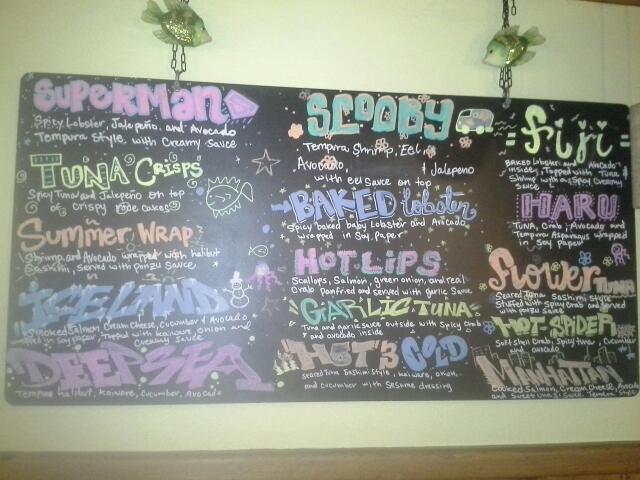 SUPERMAN
Spicy Lobster, Jalepeño, and Avocado
Tempura Style, with Creamy Sauce
TUNA CRISPS
Spicy Tuna and Jalepeño on top
of Crispy Rice Cakes
Summer WRAP
Shrimp and Avocado wrapped with halibut
Sashimi, Served with Ponzu Sauce
Smoked Salmon, Cream Cheese, Cucumber & Avocado
in Soy paper Topped with Kaiware, Onion and
Creamy Sauce
DEEPSEA
Tempura halibut, Kaiware, Cucumber, Avocado
SCOOBY
Tempura Shrimp, Eel,
Avocado, & Jalepeno
with Eel Sauce on top
BAKED lobster
Spicy baked baby Lobster and Avocado
wrapped in Soy Paper
HOT LIPS
Scallops, Salmon, green onion, and real
Crab panfried and served with garlic Sauce
GARLIC TUNA
Tuna and garlic sauce outside with Spicy Crab
and avocado inside
"HOT'3 COLD
Seared Tuna Sashimi Style, kaiware, onion,
and cucumber with Sesame dressing
Fiji
BAKED Lobster and Avocado
inside, Topped with Tuna &
Shrimp with a Spicy Creamy
Sauce
HARU
Tuna, Crab, Avocado and
Tempura Asparagus wrapped
in Soy paper
Flower TUNA
Seared Tuna Sashimi Style
Stuffed with Spicy Crab and served
with Ponzu Sauce
HOT-SPIDER
Soft Shell Crab, Spicy Tuna, Cucumber
and avocado
MANHATTAN
Cooked Salmon, Cream Cheese, Avocado
and Sweet Unagi Sauce. Tempura Style